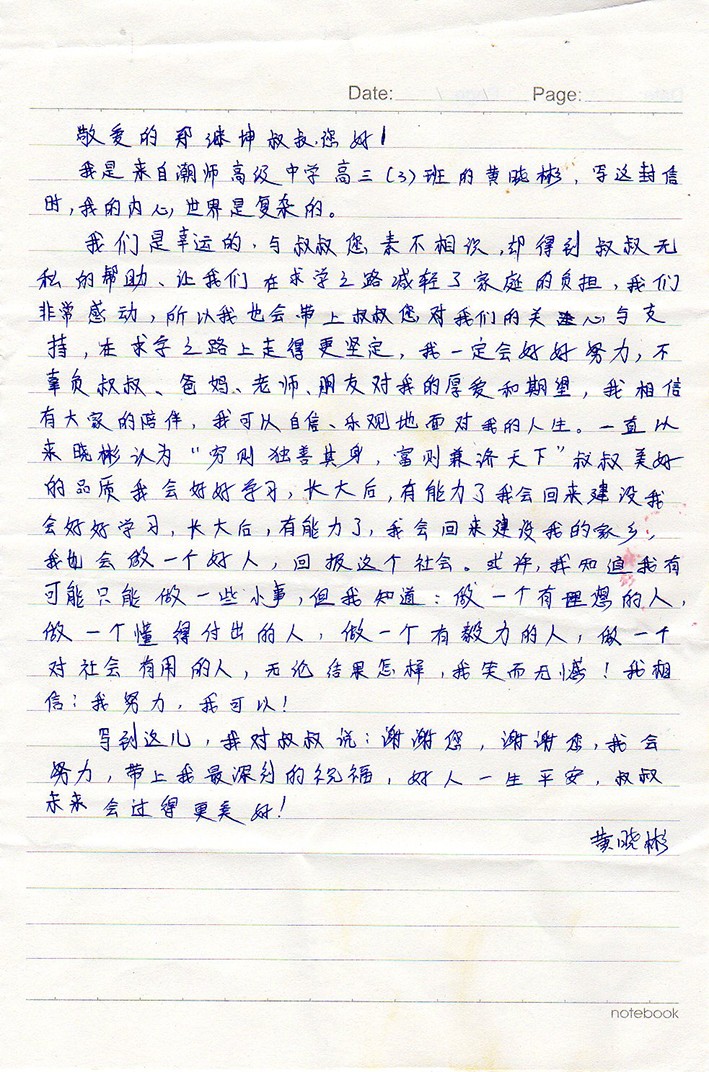 Date: Page:
敬爱的郑继坤叔叔,您好!
我是来自潮师高级中学高三(3)班的黄晓彬,写这封信
时,我的内心世界是复杂的。
我们是幸运的,与叔叔您素不相识,却得到叔叔无
私的帮助、让我们在求学之路减轻了家庭的负担,我们
非常感动,所以我也会带上叔叔您对我们的关心与支
持,在求学之路上走得更坚定,我一定会好好努力,不
辜负叔叔、爸妈、老师、朋友对我的厚爱和期望,我相信
有大家的陪伴,我可以自信、乐观地面对我的人生。一直以
来晓彬认为“穷则独善其身,富则兼济天下”叔叔美好
的品质我会好好学习,长大后,有能力了我会回来建设我
会好好学习,长大后,有能力了,我会回来建设我的家乡,
我也会做一个好人,回报这个社会。或许,我知道我有
可能只能做一些小事,但我知道:做一个有理想的人,
做一个懂得付出的人,做一个有毅力的人,做一个
对社会有用的人,无论结果怎样,我笑而无憾!我相
信:我努力,我可以!
写到这儿,我对叔叔说:谢谢您,谢谢您,我会
努力,带上我最深刻的祝福,好人一生平安,叔叔
未来会过得更美好!
黄晓彬
notebook